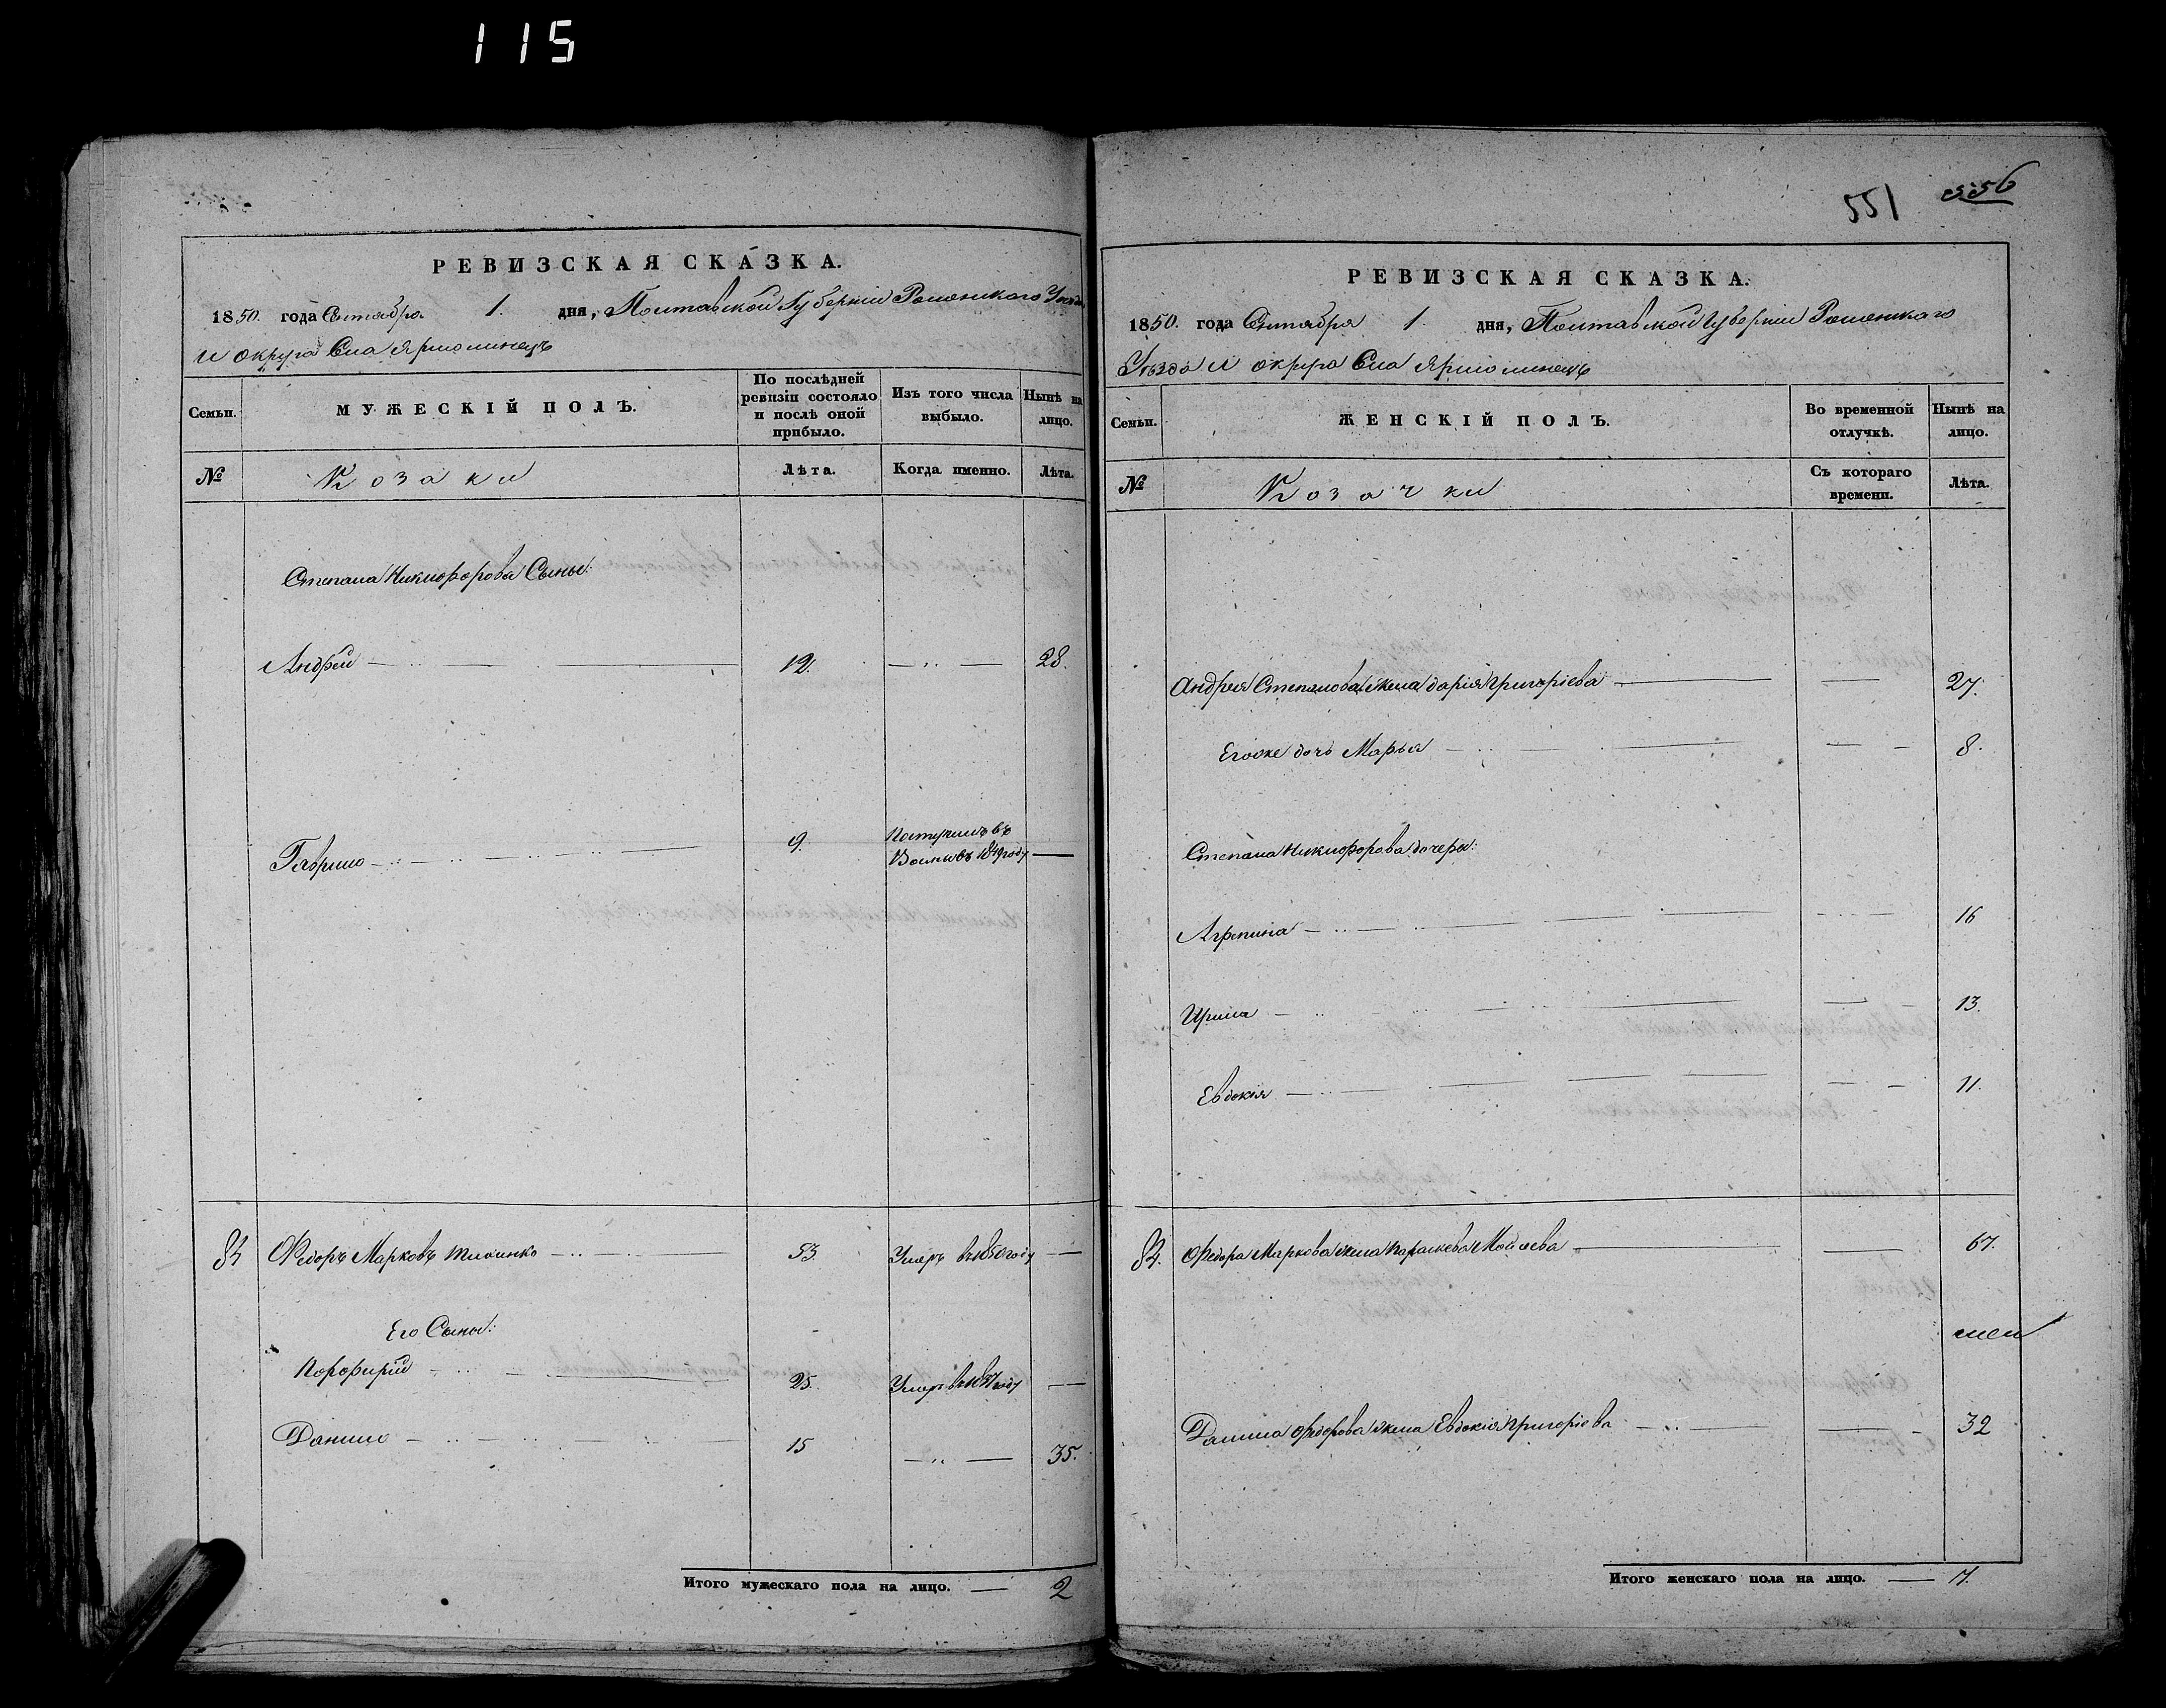 115
РЕВИЗСКАЯ СКАЗКА.
1850. года Октября 1. дня, Полтавской Губернии Роменскаго Уезда
и округа Села Ярмолинецъ
Семьи.
МУЖЕСКІЙ ПОЛЪ.
По послѣдней ревизіи состояло и послѣ оной прибыло.
Изъ того числа выбыло.
Нынѣ на лицо.
№
Козаки
Лѣта.
Когда именно.
Лѣта.
Степана Никифорова Сыны:
Андрей 12. 28.
Гаврило 9. Поступилъ въ
1849 году
84 Федоръ Марковъ 53. Умеръ въ 1850 году
Его Сыны:
Порфирій 25. Умеръ въ 1837 году
Данило 15 35.
Итого мужескаго пола на лицо. 2
551 556
РЕВИЗСКАЯ СКАЗКА.
1850. года Октября 1. дня, Полтавской Губерніи Роменскаго
Уѣзда и округа Села Ярмолинецъ
Семьи.
ЖЕНСКІЙ ПОЛЪ.
Во временной отлучкѣ.
Нынѣ на лицо.
№
Козачки
Съ котораго времени.
Лѣта.
Андрея Степанова жена Дарія Григоріева 27.
Его же дочь Марья 8.
Степана Никифорова дочеры:
Агрепина 16
Ирина 13.
Евдокія 11.
84. Федора Маркова жена Параскева Мойсева 67.
Данила Федорова жена Евдокія Григоріева 32
Итого женскаго пола на лицо. 7.